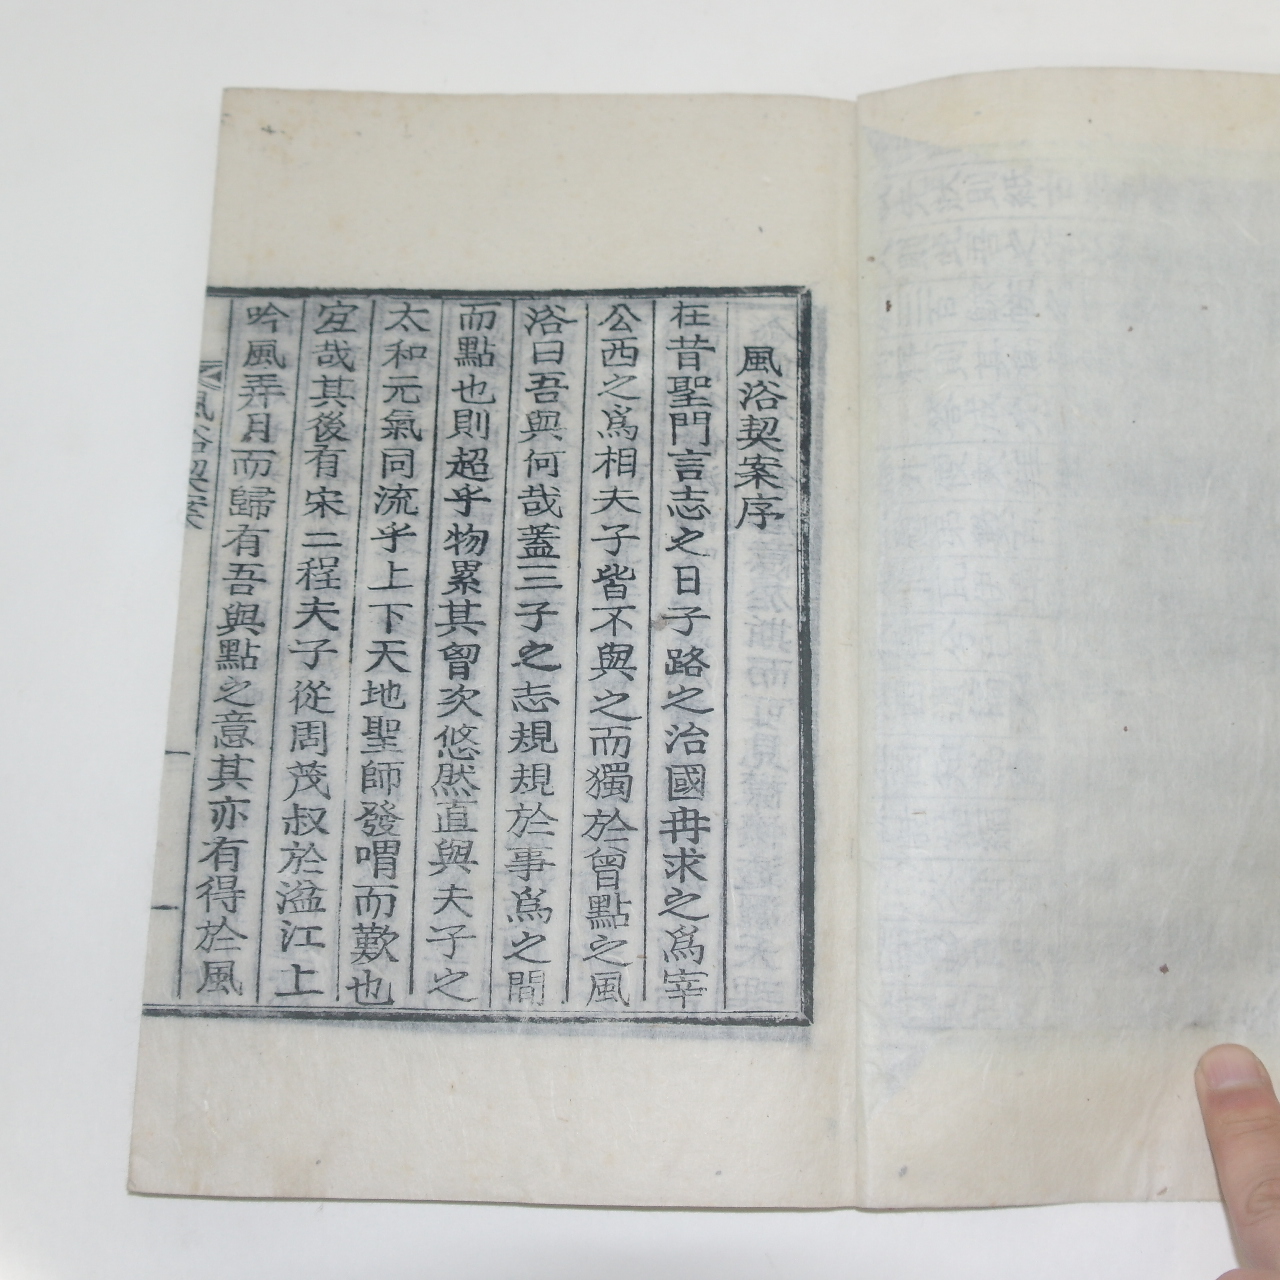 風浴契案序
在昔聖門言志之日子路之治國冉求之爲宰
公西之爲相夫子皆不與之而獨於曾點之風
浴曰吾與何哉蓋三子之志規規於事爲之間
而點也則超乎物累其胷次悠然直與夫子之
太和元氣同流乎上下天地聖師發喟而歎也
宜哉其後有宋二程夫子從周茂叔於湓江上
吟風弄月而歸有吾與點之意其亦有得於風
風浴契案